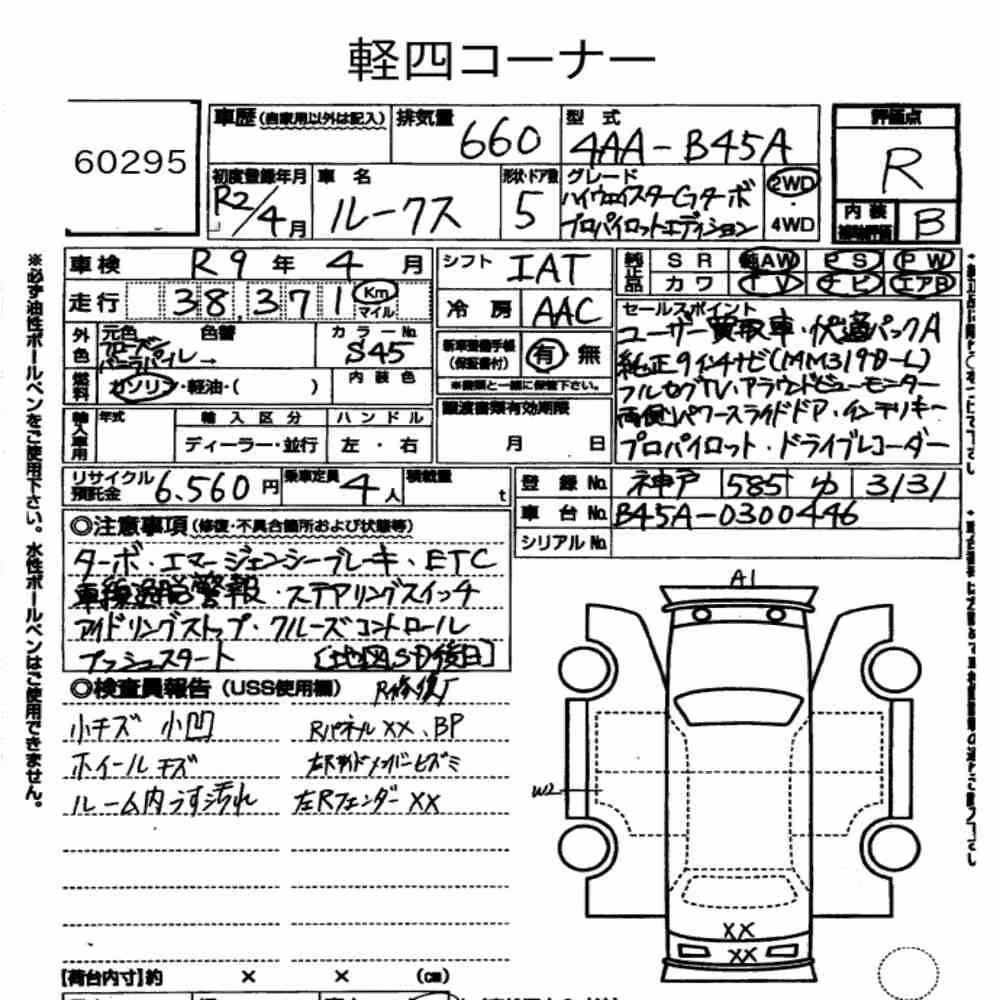 軽四コーナー
60295
車歴(自家用以外は記入)
排気量 660
型式 4AA-B45A
評価点 R
初度登録年月 R2/4月
車名 ルークス
形状・ドア数 5
グレード ハイウェイスターGターボ
プロパイロットエディション
2WD・4WD
内装補助評価 B
車検 R9年4月
シフト IAT
純正品 SR 純AW PS PW
カワ TV ナビ エアB
走行 38,371 Km マイル
冷房 AAC
外色 元色 色替
→
カラーNo. S45
燃料 ガソリン・軽油・( )
内装色
新車整備手帳(保証書付) 有 無
※書類と一緒に保管下さい。
セールスポイント
ユーザー買取車・快適パックA
純正9インチナビ(MM319D-L)
フルセグTV・アラウンドビューモニター
両側パワースライドドア・インテリキー
プロパイロット・ドライブレコーダー
輸入車用 年式 輸入区分 ハンドル
ディーラー・並行 左・右
譲渡書類有効期限
月 日
リサイクル預託金 6,560円
乗車定員 4人
積載量 t
登録No. 神戸 585 ゆ 3131
車台No. B45A-0300446
シリアルNo.
◎注意事項(修復・不具合箇所および状態等)
ターボ・エマージェンシーブレーキ・ETC
車線逸脱警報・ステアリングスイッチ
アイドリングストップ・クルーズコントロール
プッシュスタート [地図SD後日]
◎検査員報告(USS使用欄) R修復有
小キズ 小凹 RパネルXX、BP
ホイールキズ 左Rサイドメンバーヒズミ
ルーム内うす汚れ 左RフェンダーXX
A1
W2
XX
XX
【荷台内寸】約 × × (cm)
※必ず油性ボールペンをご使用下さい。水性ボールペンはご使用できません。